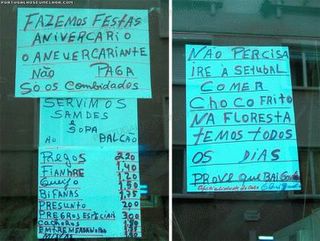 PORTUGALNOSEUMELHOR.COM
FAZEMOS FESTAS
ANIVERCARIO
O ANEVERCARIANTE
NÃO PAGA
SÓ OS COMBIDADOS
SERVIMOS
SAMDES
E
SOPA
AO BALCÃO
PREGOS 2.20
FIAMBRE 1.40
QUEIJO 1.20
MISTAS 1.50
BIFANAS 1.75
PRESUNTO 200
PREGROS ESPECIAL 300
CACHOROS
ENTREMESADA
NÃO PERCISA
IRE A SETUBAL
COMER
CHOCO FRITO
NA FLORESTA
TEMOS TODOS
OS DIAS
PROVE QUE BAI